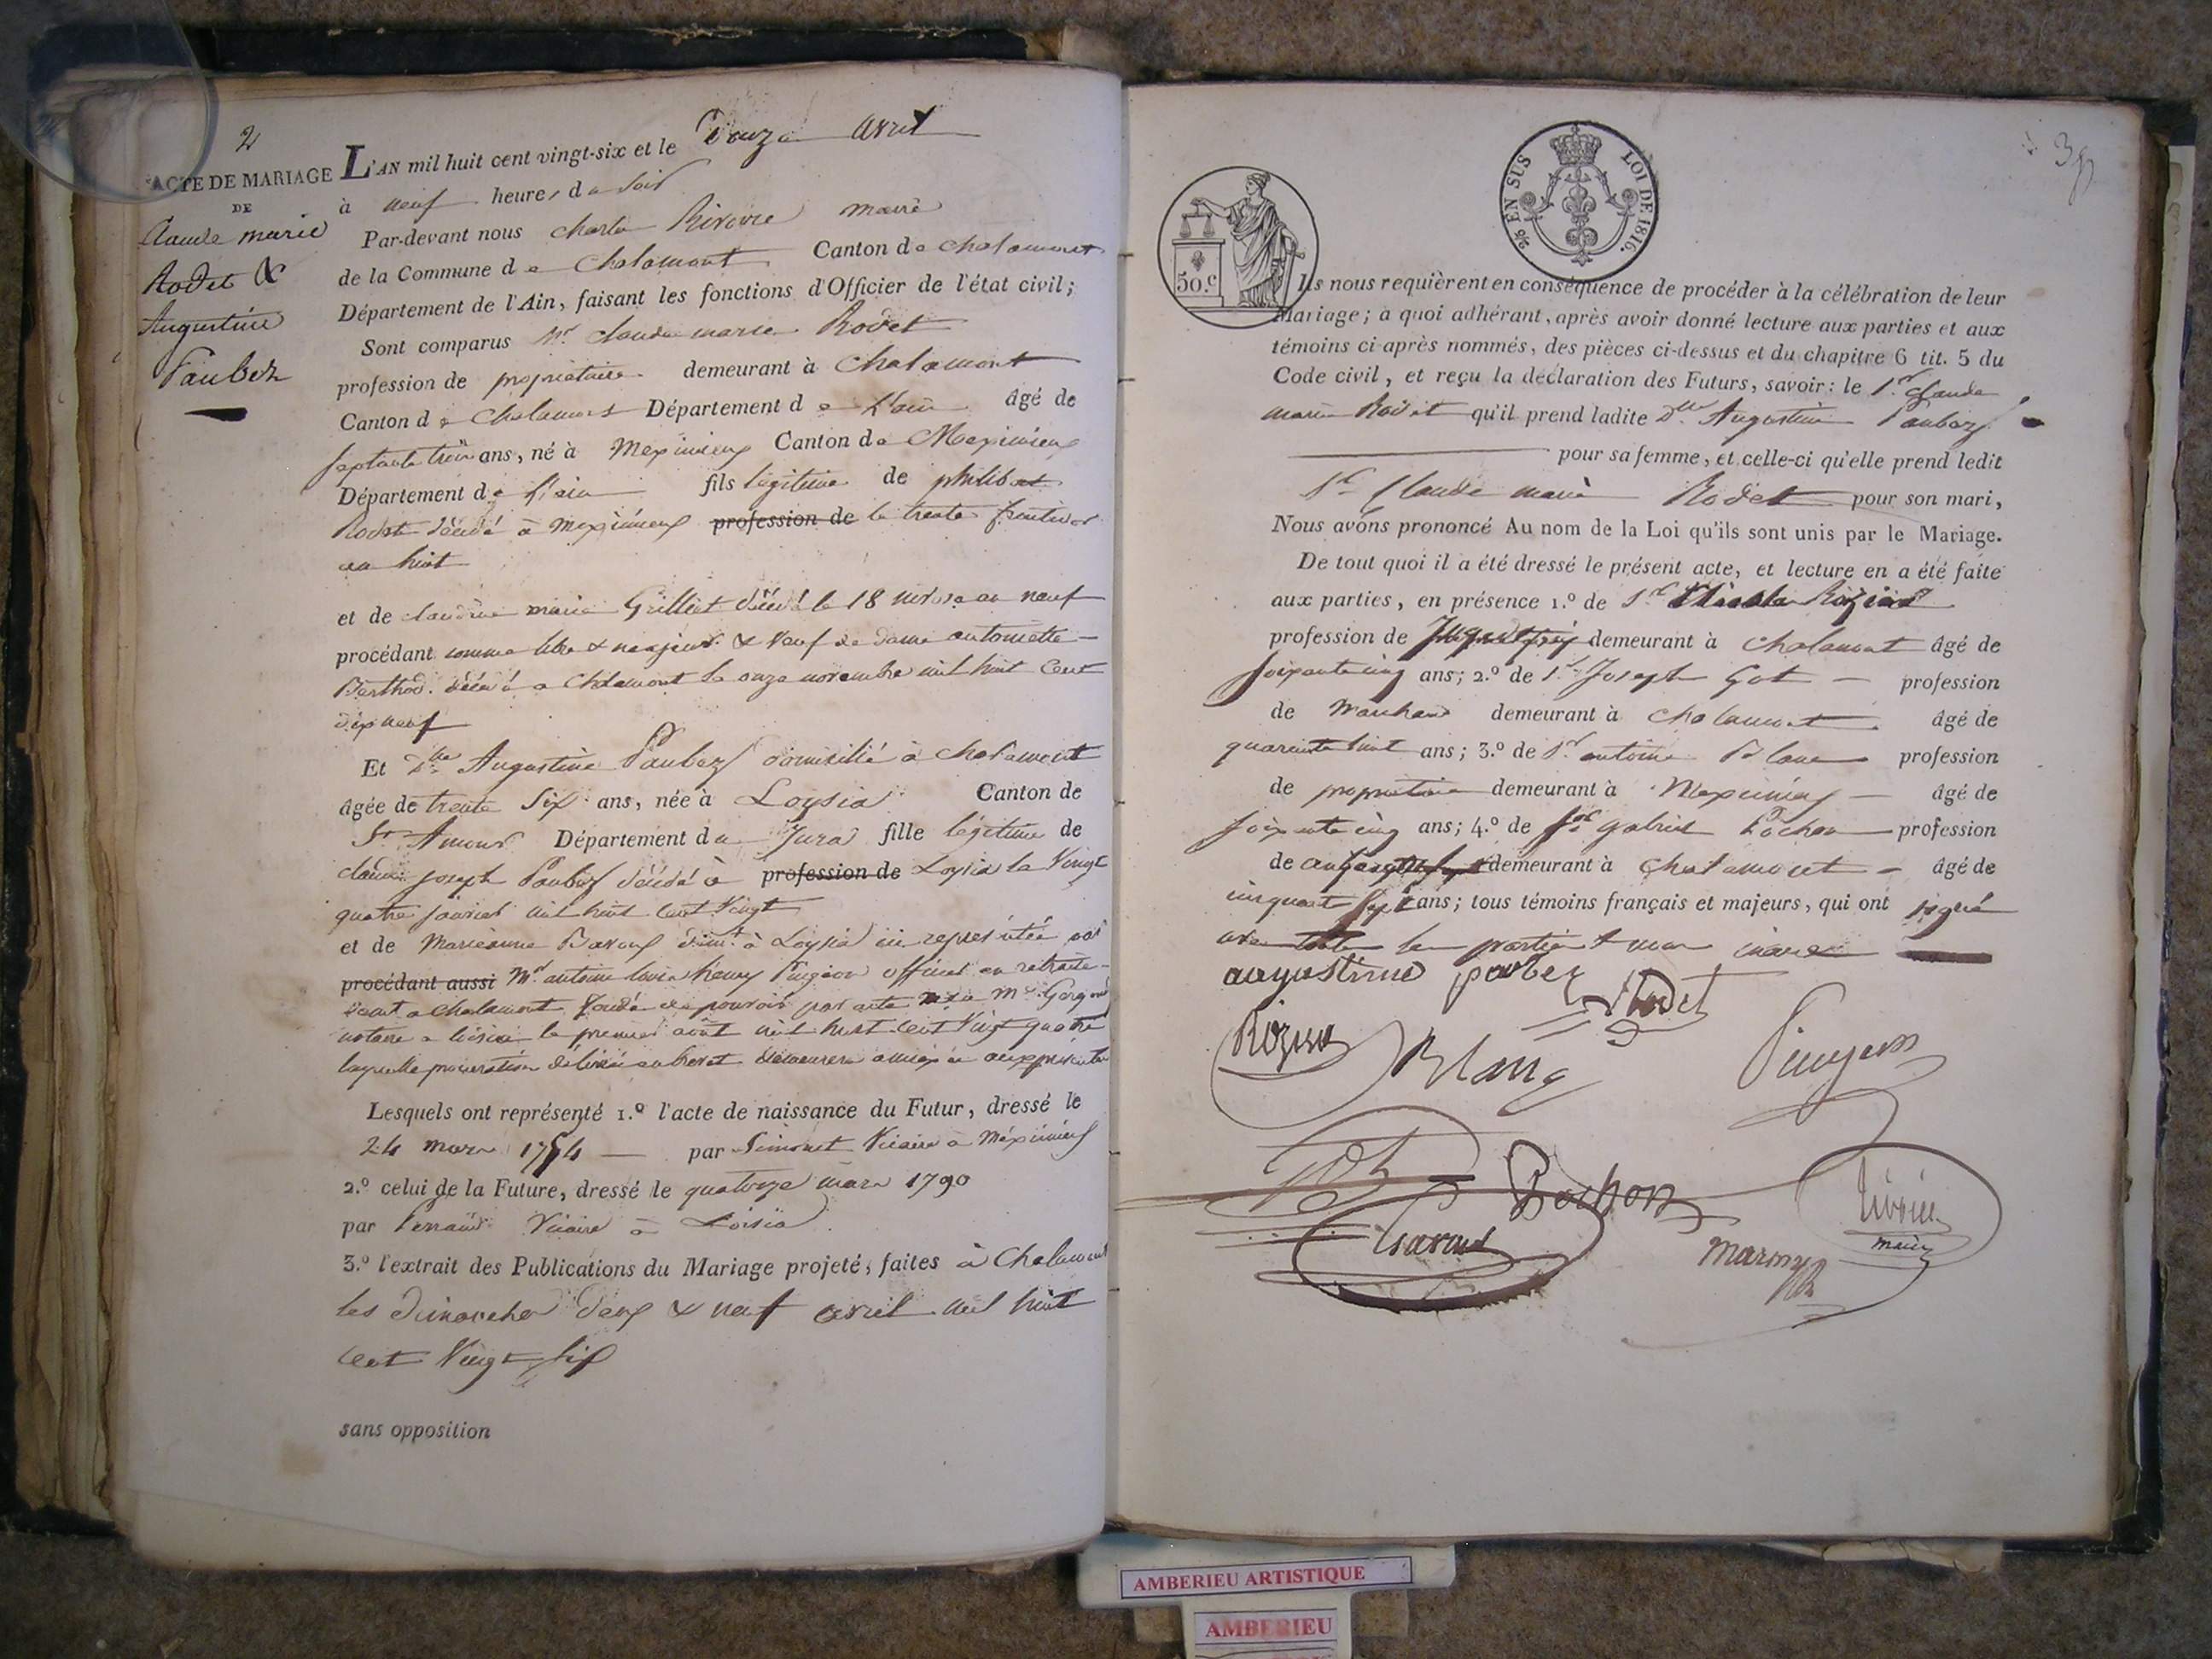 2
ACTE DE MARIAGE
DE
Claude marie
Rodet &
Augustine
Paubez
L'AN mil huit cent vingt-six et le Douze avril
à neuf heures du soir
Par-devant nous charles Riviere maire
de la Commune de Chalamont Canton de chalamont
Département de l'Ain, faisant les fonctions d'Officier de l'état civil;
Sont comparus Sr. claude marie Rodet
profession de propriétaire demeurant à Chalamont
Canton de Chalamont Département de L'ain âgé de
septante trois ans, né à Meximieux Canton de Meximieux
Département de L'ain fils légitime de philibert
Rodet décédé à meximieux profession de le trente frimaire
an huit
et de claudine marie Grilliet décédé le 18 nivose an neuf
procédant comme libre & majeur & veuf de dame antoinette
Berthod décédé a Chalamont le onze novembre mil huit Cent
dix neuf
Et Dlle Augustine Paubez domicilié à chalamont
âgée de trente Six ans, née à Loysia Canton de
St. Amour Département du Jura fille légitime de
claude joseph Paubez décédé à profession de Loysia le Vingt
quatre janvier mil huit cent Vingt
et de Marieanne domt. à Loysia ici représentée par
procédant aussi Mr. antoine louis henry Pingeon officier en retraite
demt a chalamont fondé de pouvoir par acte Me.
notaire a loisia le premier août mil huit cent Vingt quatre
laquelle procuration délivrée en brevet demeurera annexée aux présentes
Lesquels ont représenté 1.º l'acte de naissance du Futur, dressé le
24 mars 1754 par Simonet Vicaire à Méximieux
2.º celui de la Future, dressé le quatorze mars 1790
par Perraud Vicaire à Loisia
3.º l'extrait des Publications du Mariage projeté, faites à Chalamont
les dimanches deux & neuf avril mil huit
cent Vingt six
sans opposition
38
2/10 EN SUS LOI DE 1816.
50.c
Ils nous requièrent en conséquence de procéder à la célébration de leur
Mariage; à quoi adhérant, après avoir donné lecture aux parties et aux
témoins ci-après nommés, des pièces ci-dessus et du chapitre 6 tit. 5 du
Code civil, et reçu la déclaration des Futurs, savoir: le Sr. Claude
marie Rodet qu'il prend ladite Dlle Augustine Paubez
pour sa femme, et celle-ci qu'elle prend ledit
Sr Claude marie Rodet pour son mari,
Nous avons prononcé Au nom de la Loi qu'ils sont unis par le Mariage.
De tout quoi il a été dressé le présent acte, et lecture en a été faite
aux parties, en présence 1.º de Sr Rozier
profession de demeurant à Chalamont âgé de
soixante cinq ans; 2.º de Sr. Joseph Got profession
de Marchand demeurant à chalamont âgé de
quarante huit ans; 3.º de Sr antoine Blanc profession
de propriétaire demeurant à Meximieux âgé de
soixante cinq ans; 4.º de Sr gabriel Bochon profession
de demeurant à Chalamont âgé de
cinquante sept ans; tous témoins français et majeurs, qui ont signé
avec les parties & nous maire
augustine paubez Rodet
Rozier Blanc Pingeon
Bochon Rivière
maire